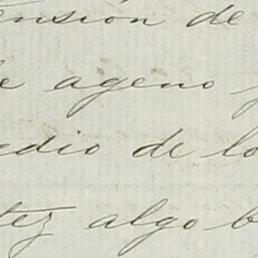 ensión de
e ageno
edio de lo
tez algo b